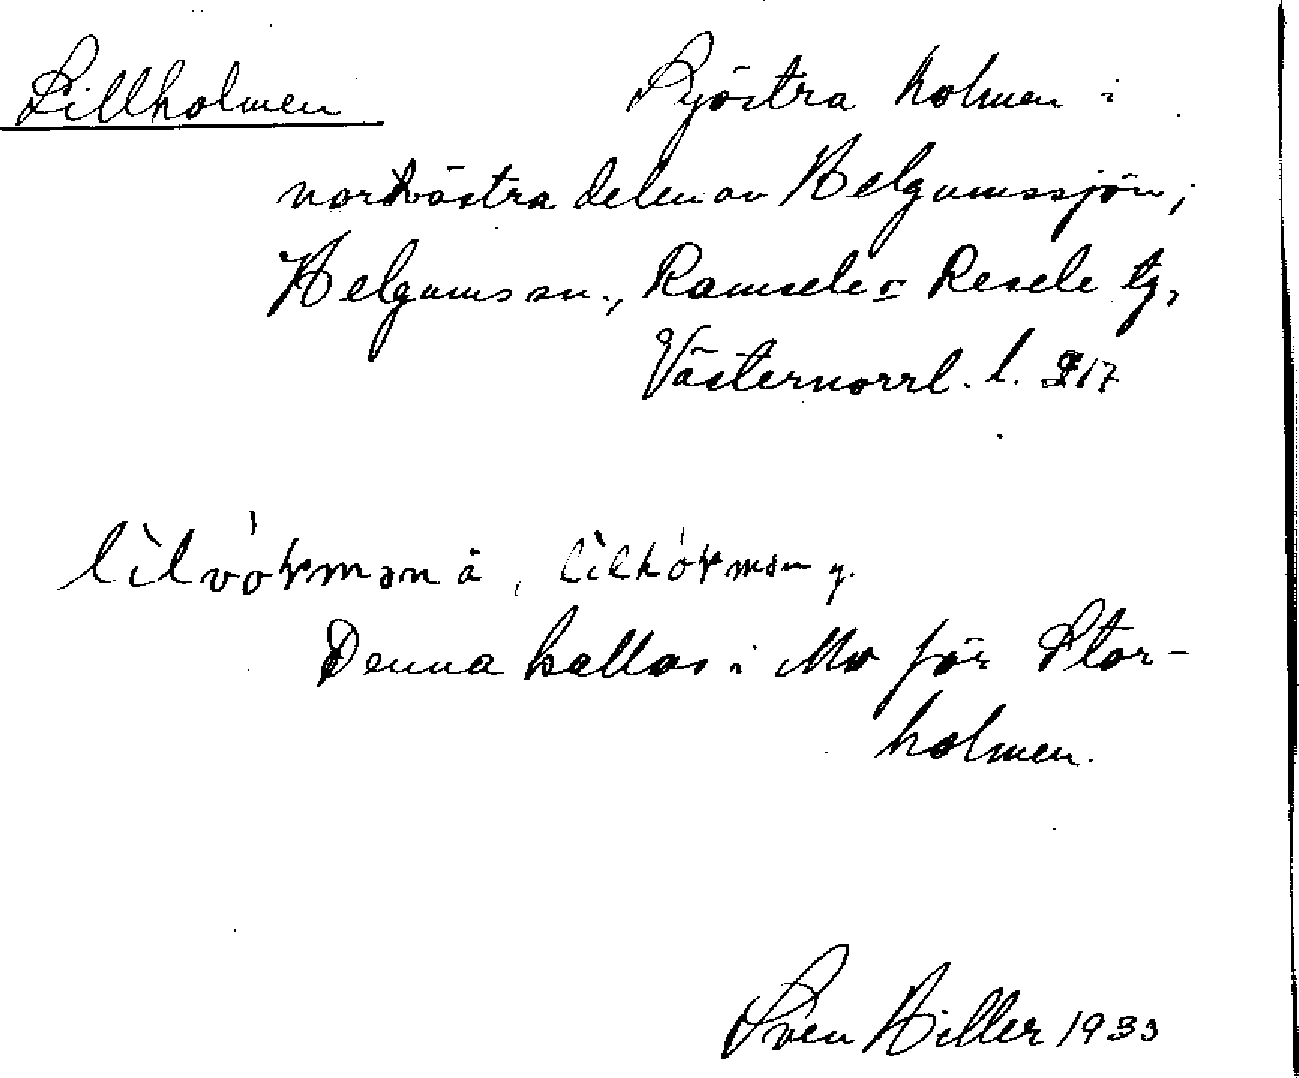 Lillholmen Sydöstra holmen i
nordvästra delen av Helgumssjön;
Helgums sn., Ramsele o Resele tg,
Västernorrl. l. 217
Denna kallas i Mo för Stor-
holmen.
Sven Hiller 1933